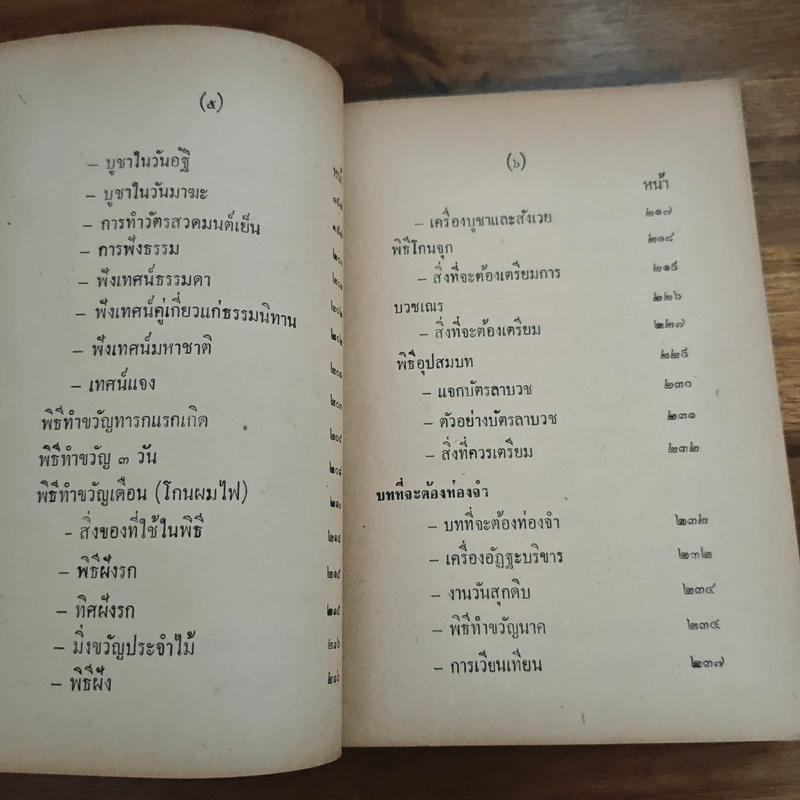 (๕)
– บูชาในวันอัฐิ
– บูชาในวันมาฆะ
– การทำวัตรสวดมนต์เย็น
– การฟังธรรม
– ฟังเทศน์ธรรมดา
– ฟังเทศน์คู่เกี่ยวแก่ธรรมนิทาน
– ฟังเทศน์มหาชาติ
– เทศน์แจง
พิธีทำขวัญทารกแรกเกิด
พิธีทำขวัญ ๓ วัน
พิธีทำขวัญเดือน (โกนผมไฟ)
– สิ่งของที่ใช้ในพิธี
– พิธีฝังรก
– ทิศฝังรก
– มิ่งขวัญประจำไม้ ๒๑๖
– พิธีฝัง ๒๑๖
(๖)
หน้า
– เครื่องบูชาและสังเวย ๒๑๗
พิธีโกนจุก ๒๑๘
– สิ่งที่จะต้องเตรียมการ ๒๑๙
บวชเณร ๒๒๖
– สิ่งที่จะต้องเตรียม ๒๒๗
พิธีอุปสมบท ๒๒๙
– แจกบัตรลาบวช ๒๓๐
– ตัวอย่างบัตรลาบวช ๒๓๑
– สิ่งที่ควรเตรียม ๒๓๒
บทที่จะต้องท่องจำ
– บทที่จะต้องท่องจำ ๒๓๒
– เครื่องอัฏฐะบริขาร ๒๓๒
– งานวันสุกดิบ ๒๓๔
– พิธีทำขวัญนาค ๒๓๕
– การเวียนเทียน ๒๓๗